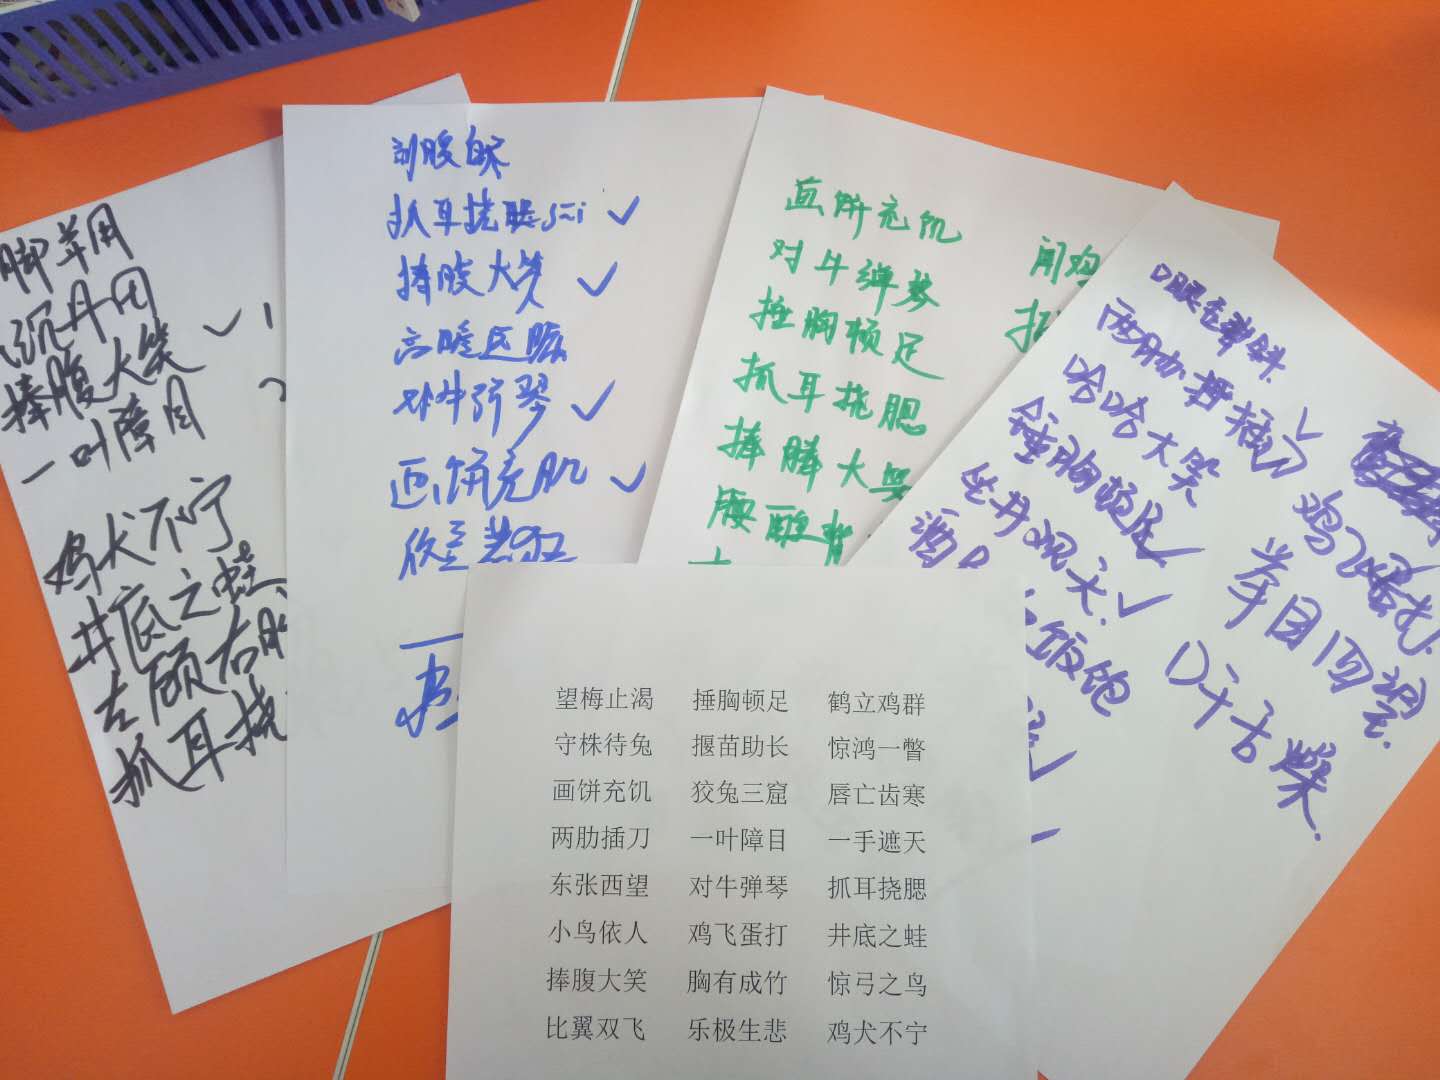 捧腹大笑
一叶障目
鸡犬不宁
井底之蛙
左顾右
抓耳挠
剖腹自
抓耳挠腮 sāi
捧腹大笑
对牛弹琴
画饼充肌
画饼充饥
对牛弹琴
捶胸顿足
抓耳挠腮
捧腹大笑
腰酸背
闻鸡
两肋插刀
哈哈大笑
捶胸顿足
坐井观天
酒
饭饱
鸡飞蛋打
举团四望
望梅止渴 捶胸顿足 鹤立鸡群
守株待兔 揠苗助长 惊鸿一瞥
画饼充饥 狡兔三窟 唇亡齿寒
两肋插刀 一叶障目 一手遮天
东张西望 对牛弹琴 抓耳挠腮
小鸟依人 鸡飞蛋打 井底之蛙
捧腹大笑 胸有成竹 惊弓之鸟
比翼双飞 乐极生悲 鸡犬不宁